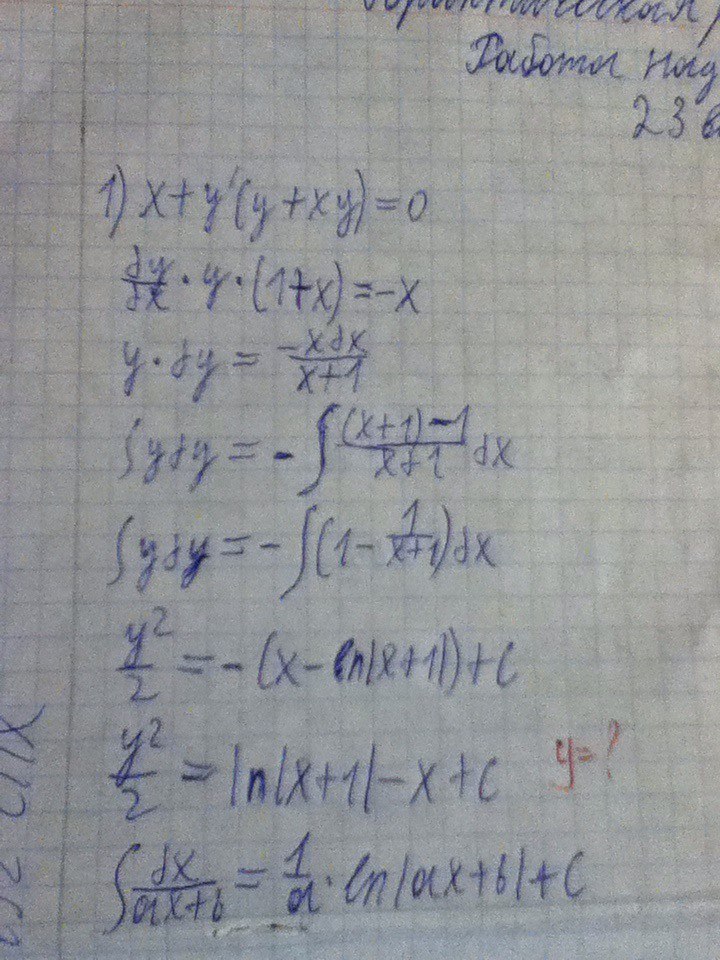 Работа над
23
1) x+y'(y+xy)=0
dy/dx · y · (1+x)=-x
y · dy = -xdx/x+1
∫ydy = -∫ (x+1)-1/x+1 dx
∫ydy = -∫(1- 1/x+1)dx
y²/2 = -(x-ln|x+1|)+C
y²/2 = ln|x+1|-x+C y=?
∫ dx/ax+b = 1/a · ln|ax+b|+C